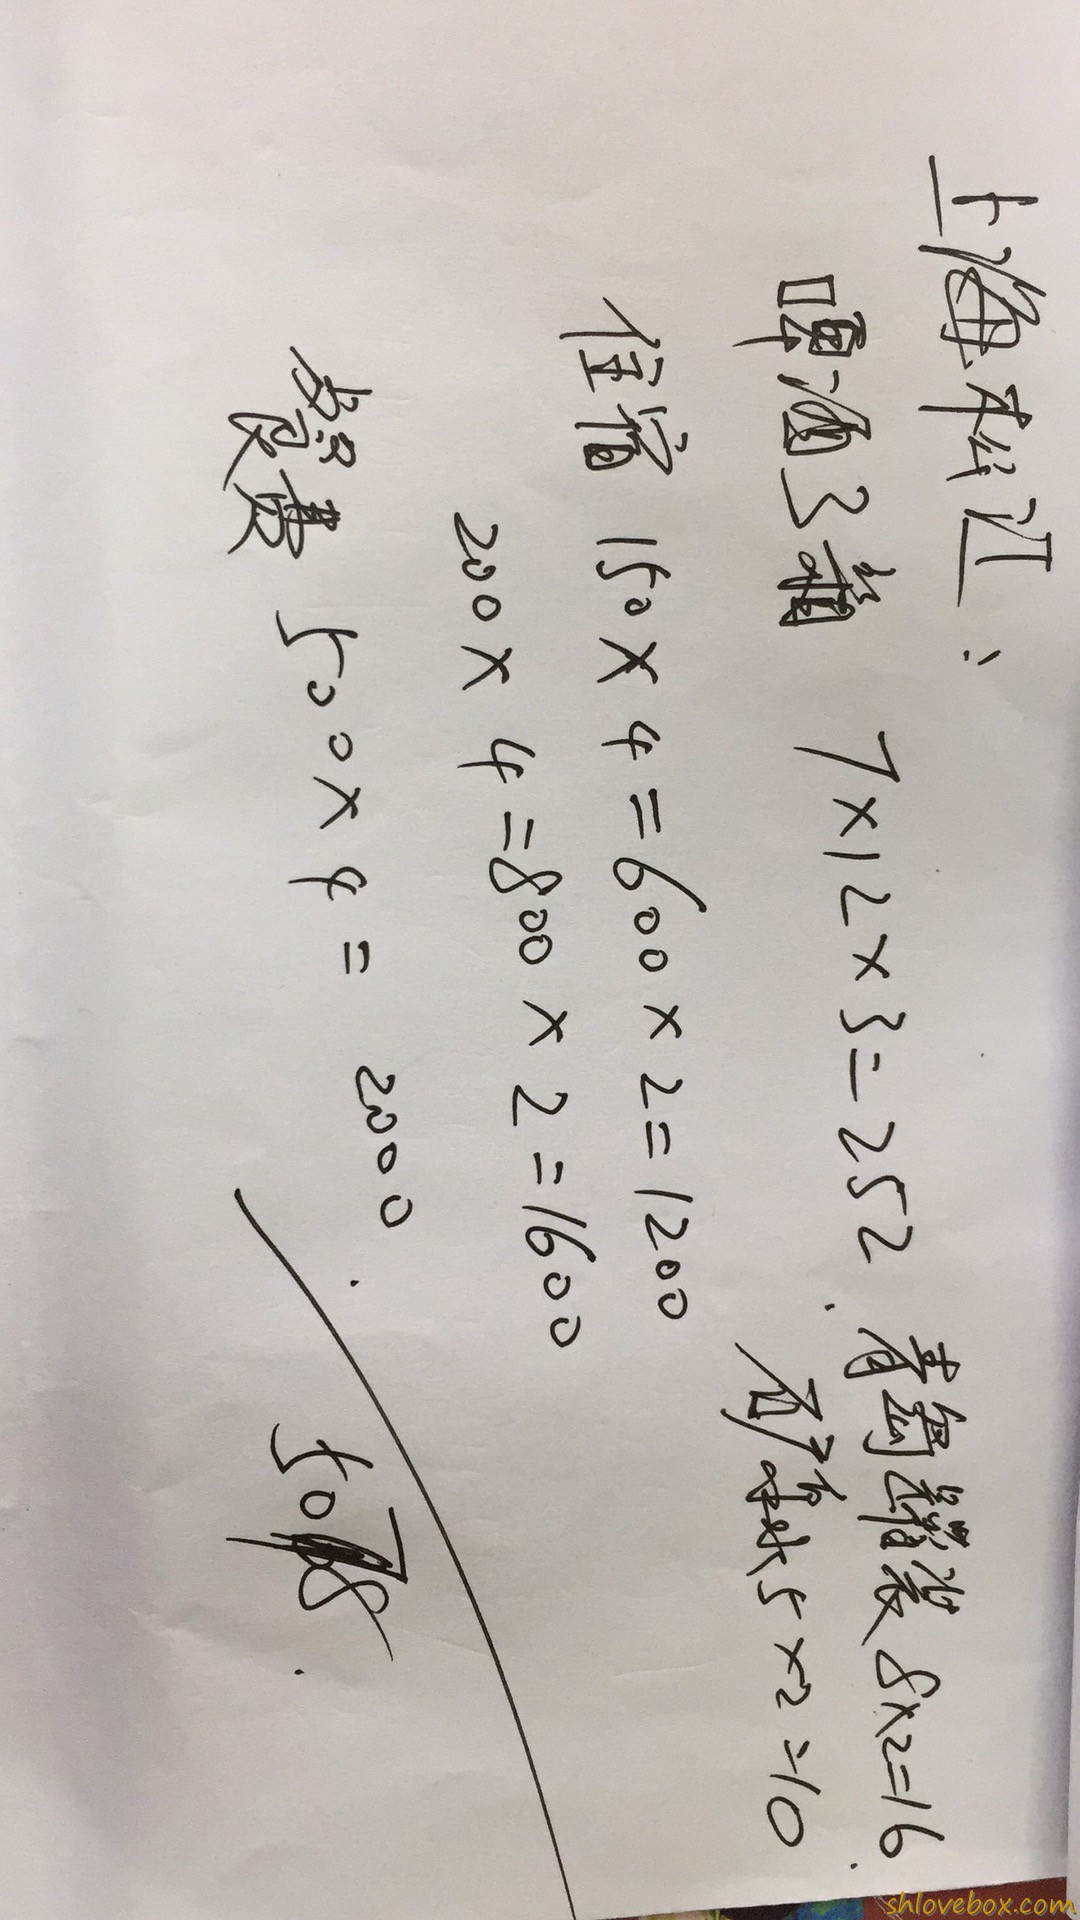 上海松江:
啤酒3箱 7×12×3=252. 青岛罐装 8×2=16.
矿泉水 5×2=10
住宿 150×4=600×2=1200
200×4=800×2=1600
餐费 500×4= 2000.
5078.
shlovebox.com